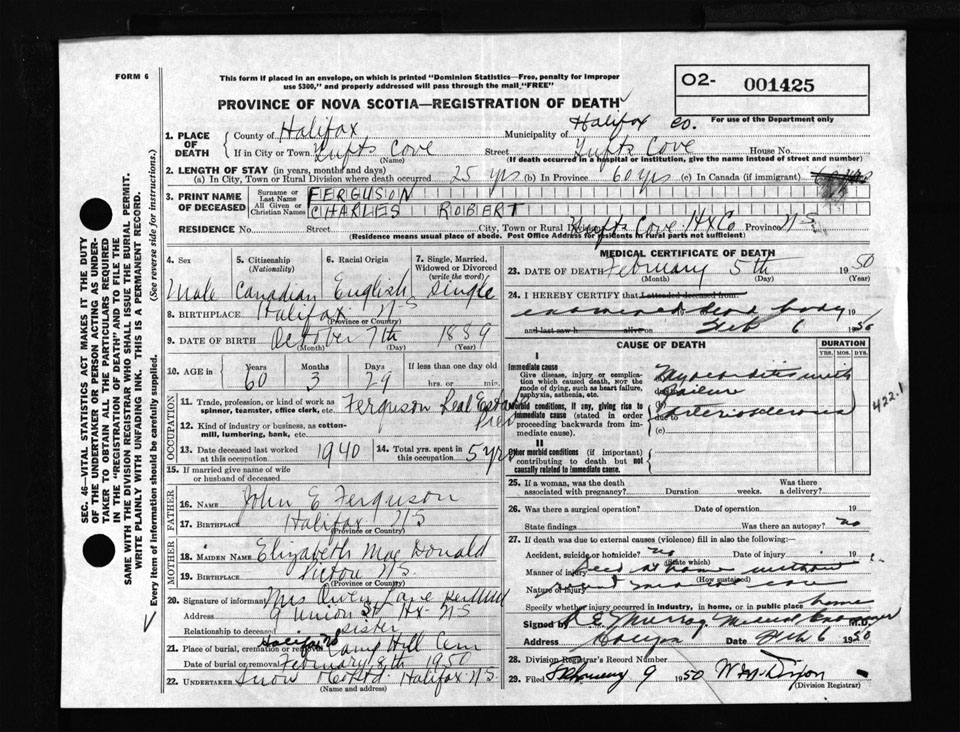 FORM 6
This form if placed in an envelope, on which is printed "Dominion Statistics—Free, penalty for improper
use $300," and properly addressed will pass through the mail "FREE"
O2- 001425
PROVINCE OF NOVA SCOTIA—REGISTRATION OF DEATH
For use of the Department only
1. PLACE OF DEATH
County of Halifax Municipality of Halifax Co.
If in City or Town Tufts Cove Street Tufts Cove House No.
(Name) (If death occurred in a hospital or institution, give the name instead of street and number)
2. LENGTH OF STAY (in years, months and days)
(a) In City, Town or Rural Division where death occurred 25 yrs (b) In Province 60 yrs (c) In Canada (if immigrant)
3. PRINT NAME OF DECEASED
Surname or Last Name FERGUSON
All Given or Christian Names CHARLES ROBERT
RESIDENCE No. Street City, Town or Rural Division Tufts Cove Hx Co Province N S
(Residence means usual place of abode. Post Office Address for residents in rural parts not sufficient)
4. Sex 5. Citizenship (Nationality) 6. Racial Origin 7. Single, Married, Widowed or Divorced (write the word)
Male Canadian English single
8. BIRTHPLACE Halifax N S
(Province or Country)
9. DATE OF BIRTH October 7th 1889
(Month) (Day) (Year)
10. AGE in Years Months Days If less than one day old
60 3 29 hrs. or min.
OCCUPATION
11. Trade, profession or kind of work as spinner, teamster, office clerk, etc. Ferguson Real Estate
12. Kind of industry or business, as cotton-mill, lumbering, bank, etc.
13. Date deceased last worked at this occupation 1940 14. Total yrs. spent in this occupation 5 yrs
15. If married give name of wife or husband of deceased
FATHER
16. NAME John E Ferguson
17. BIRTHPLACE Halifax N S
(Province or Country)
MOTHER
18. MAIDEN NAME Elizabeth Mac Donald
19. BIRTHPLACE Pictou N S.
(Province or Country)
20. Signature of informant Mrs Owen
Address 9 Union St Hx N S
Relationship to deceased Sister
21. Place of burial, cremation or removal Halifax N S Camp Hill Cem
Date of burial or removal February 8th 1950
22. UNDERTAKER Snow & Co Ltd. Halifax N S.
(Name and address)
MEDICAL CERTIFICATE OF DEATH
23. DATE OF DEATH February 5th 1950
(Month) (Day) (Year)
24. I HEREBY CERTIFY that I attended deceased from:
examined dead body 19
and last saw h alive on Feb 6 1950
CAUSE OF DEATH
DURATION
YRS. MOS. DYS.
I
Immediate cause
Give disease, injury or complication which caused death, NOT the mode of dying, such as heart failure, asphyxia, asthenia, etc.
Myocarditis with
failure
Morbid conditions, if any, giving rise to immediate cause (stated in order proceeding backwards from immediate cause).
due to Arteriosclerosis
(c)
422.1
II
Other morbid conditions (if important) contributing to death but not causally related to immediate cause.
25. If a woman, was the death associated with pregnancy? Duration weeks. Was there a delivery?
26. Was there a surgical operation? Date of operation 19
State findings Was there an autopsy? no
27. If death was due to external causes (violence) fill in also the following:
Accident, suicide or homicide? no Date of injury 19
(State which)
Manner of injury Died at home without
(How sustained)
Nature of injury
Specify whether injury occurred in industry, in home, or in public place home
Signed by R. E. Murray Medical Examiner M.D.
Address Halifax Date Feb 6 1950
28. Division Registrar's Record Number
29. Filed February 9 1950 W Dixon
(Division Registrar)
SEC. 46—VITAL STATISTICS ACT MAKES IT THE DUTY
OF THE UNDERTAKER OR PERSON ACTING AS UNDER-
TAKER TO OBTAIN ALL THE PARTICULARS REQUIRED
IN THE "REGISTRATION OF DEATH" AND TO FILE THE
SAME WITH THE DIVISION REGISTRAR WHO SHALL ISSUE THE BURIAL PERMIT.
WRITE PLAINLY WITH UNFADING INK. THIS IS A PERMANENT RECORD.
Every item of information should be carefully supplied. (See reverse side for instructions.)